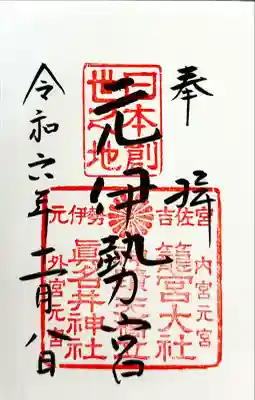 奉拝
日本創
世之地
元伊勢宮
元伊勢 吉佐宮
内宮元宮
籠宮大社
眞名井神社
外宮元宮
令和六年二月八日